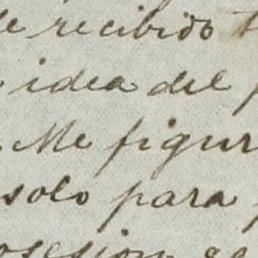 recibido
idea del
Me figur
solo para
osesion se